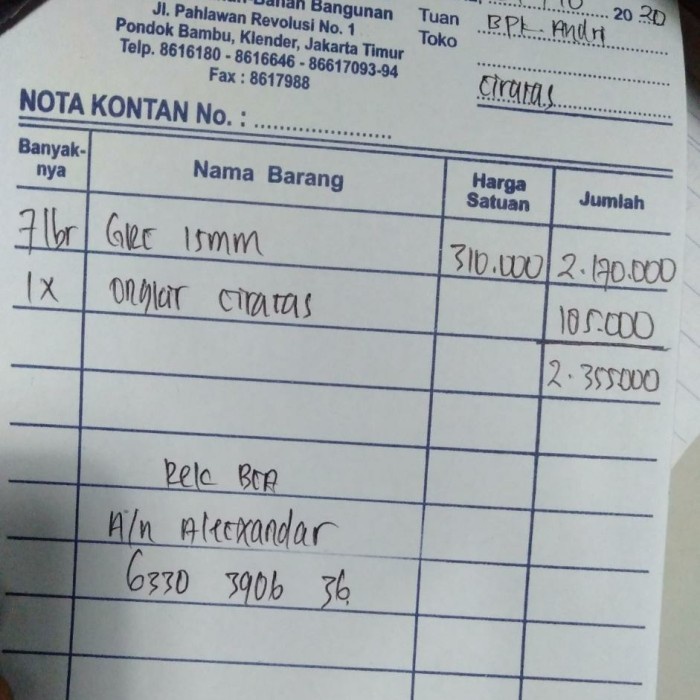 Bahan Bangunan
Jl. Pahlawan Revolusi No. 1
Pondok Bambu, Klender, Jakarta Timur
Telp. 8616180 - 8616646 - 86617093-94
Fax : 8617988
20 20
Tuan BPk Andri
Toko
Ciracas
NOTA KONTAN No. :
Banyak-
nya
Nama Barang
Harga
Satuan
Jumlah
7 lbr GRC 15mm 310.000 2.170.000
1x ongkir ciracas 185.000
2.355000
Rek BCA
A/n Alecxandar
6330 3906 36